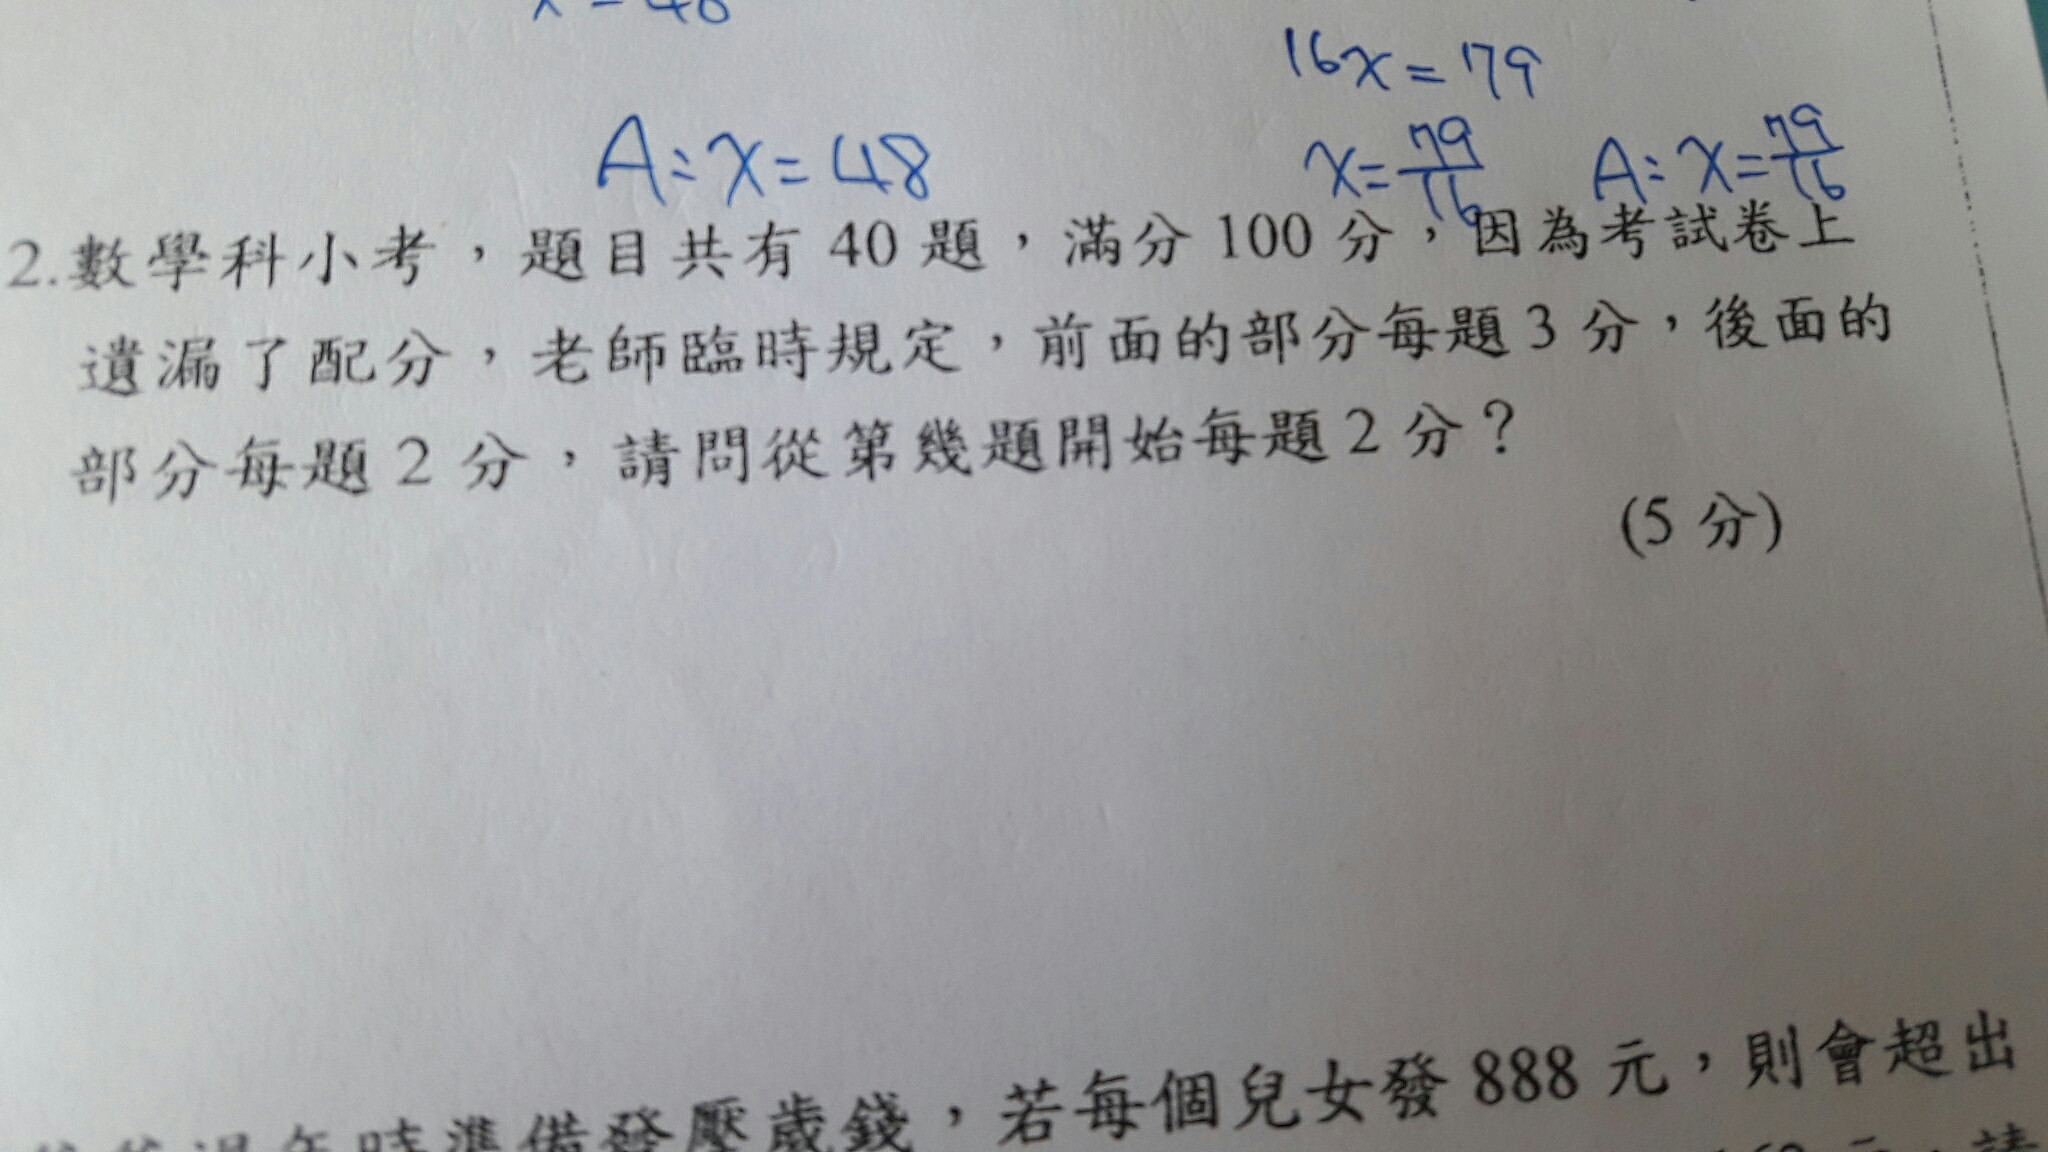 x=48
16x=79
A:x=48
x=79/16 A:x=79/16
2.數學科小考，題目共有 40 題，滿分 100 分，因為考試卷上
遺漏了配分，老師臨時規定，前面的部分每題 3 分，後面的
部分每題 2 分，請問從第幾題開始每題 2 分？
(5 分)
過年時準備發壓歲錢，若每個兒女發 888 元，則會超出
元，請